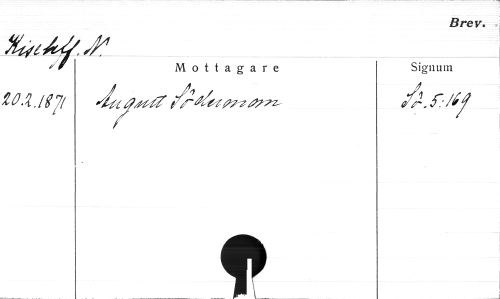 Brev.
Kiseleff. N.
Mottagare Signum
20.2.1871 August Söderman Sö. 5:169